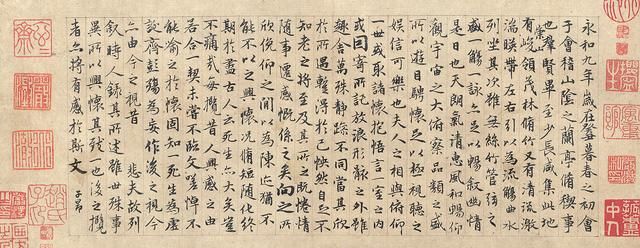 永和九年歲在癸暮春之初會
于會稽山陰之蘭亭脩稧事
也羣賢畢至少長咸集此地
有崇山峻領茂林脩竹又有清流激
湍暎帶左右引以為流觴曲水
列坐其次雖無絲竹管弦之
盛一觴一詠亦足以暢敘幽情
是日也天朗氣清惠風和暢仰
觀宇宙之大俯察品類之盛
所以遊目騁懷足以極視聽之
娛信可樂也夫人之相與俯仰
一世或取諸懷抱悟言一室之内
或因寄所託放浪形骸之外雖
趣舍萬殊靜躁不同當其欣
於所遇暫得於己怏然自足不
知老之將至及其所之既惓情
隨事遷感慨係之矣向之所
欣俛仰之間以為陳迹猶不
能不以之興懷況脩短隨化終
期於盡古人云死生亦大矣豈
不痛哉每攬昔人興感之由
若合一契未嘗不臨文嗟悼不
能喻之於懷固知一死生為虛
誕齊彭殤為妄作後之視今
亦由今之視昔 悲夫故列
敘時人錄其所述雖世殊事
異所以興懷其致一也後之攬
者亦將有感於斯文
子昂